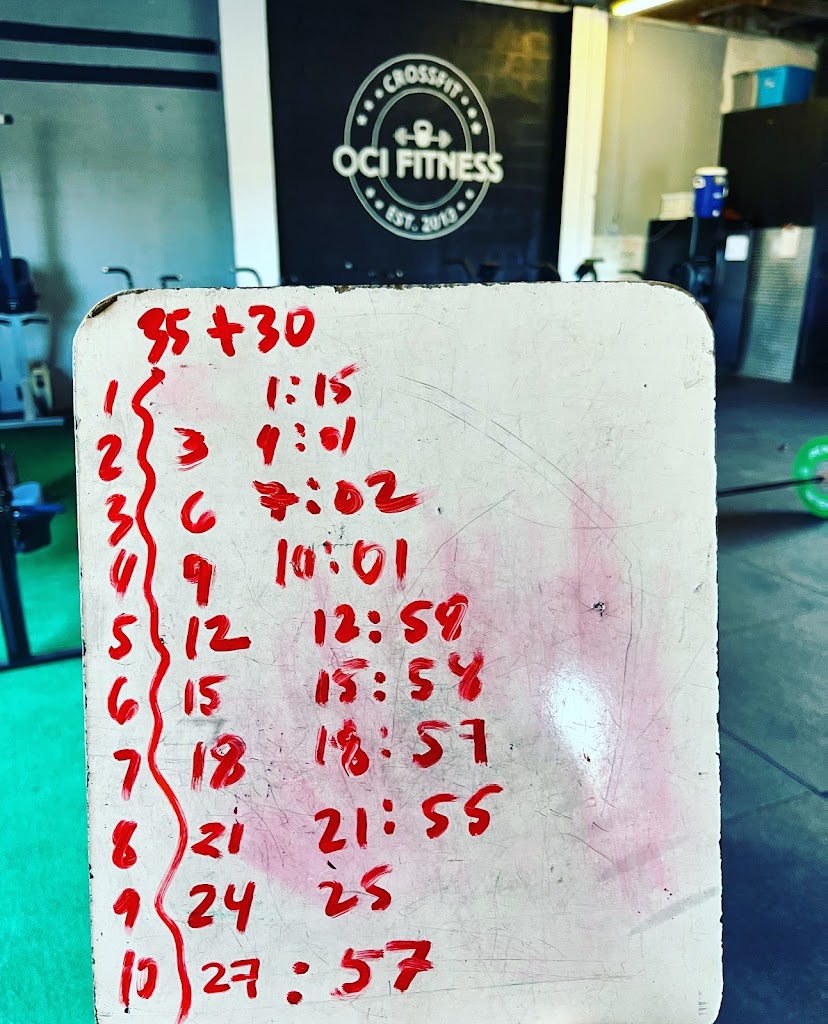 CROSSFIT
OCI FITNESS
EST. 2013
35 + 30
1 1:15
2 3 4:01
3 6 7:02
4 9 10:01
5 12 12:59
6 15 15:58
7 18 18:57
8 21 21:55
9 24 25
10 27:57